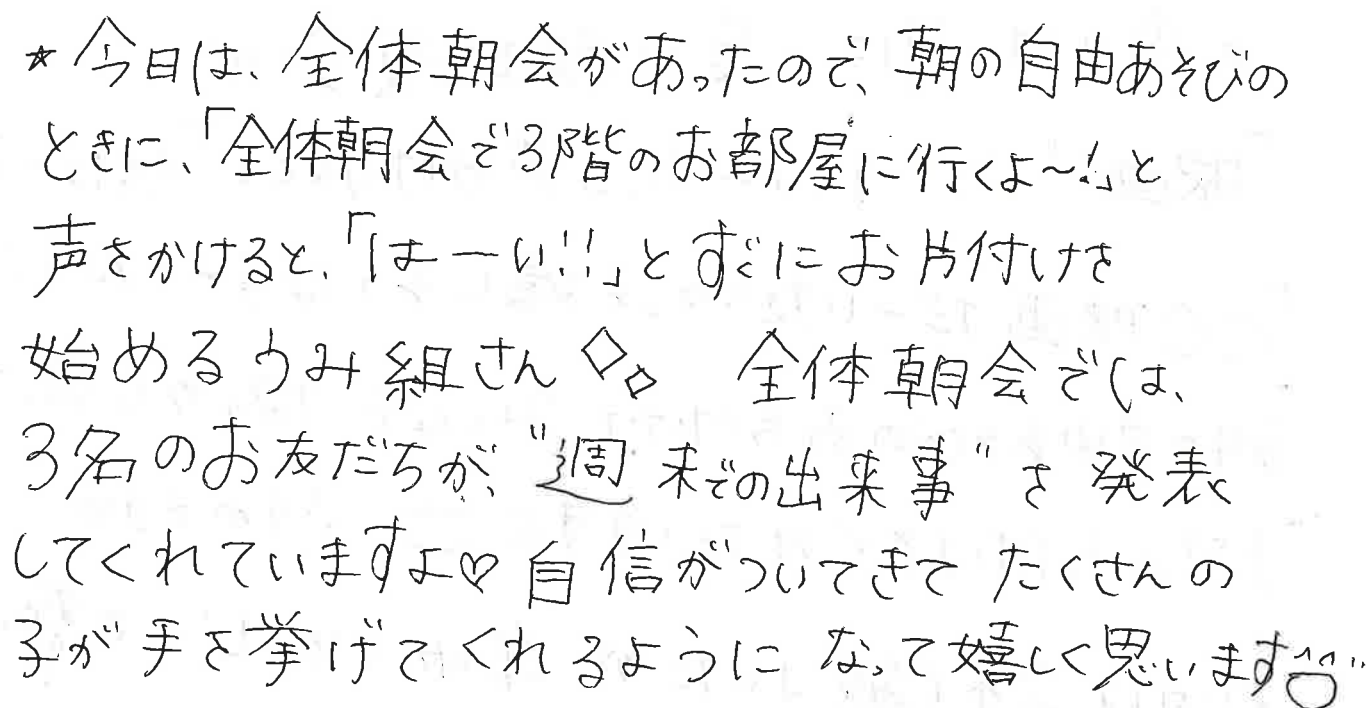 ★今日は、全体朝会があったので、朝の自由あそびの
ときに、「全体朝会で3階のお部屋に行くよ〜!」と
声をかけると、「はーい!!」とすぐにお片付けを
始めるうみ組さん◇◇ 全体朝会では、
3名のお友だちが、"週末での出来事"を発表
してくれていますよ♡自信がついてきてたくさんの
子が手を挙げてくれるようになって嬉しく思います^^"